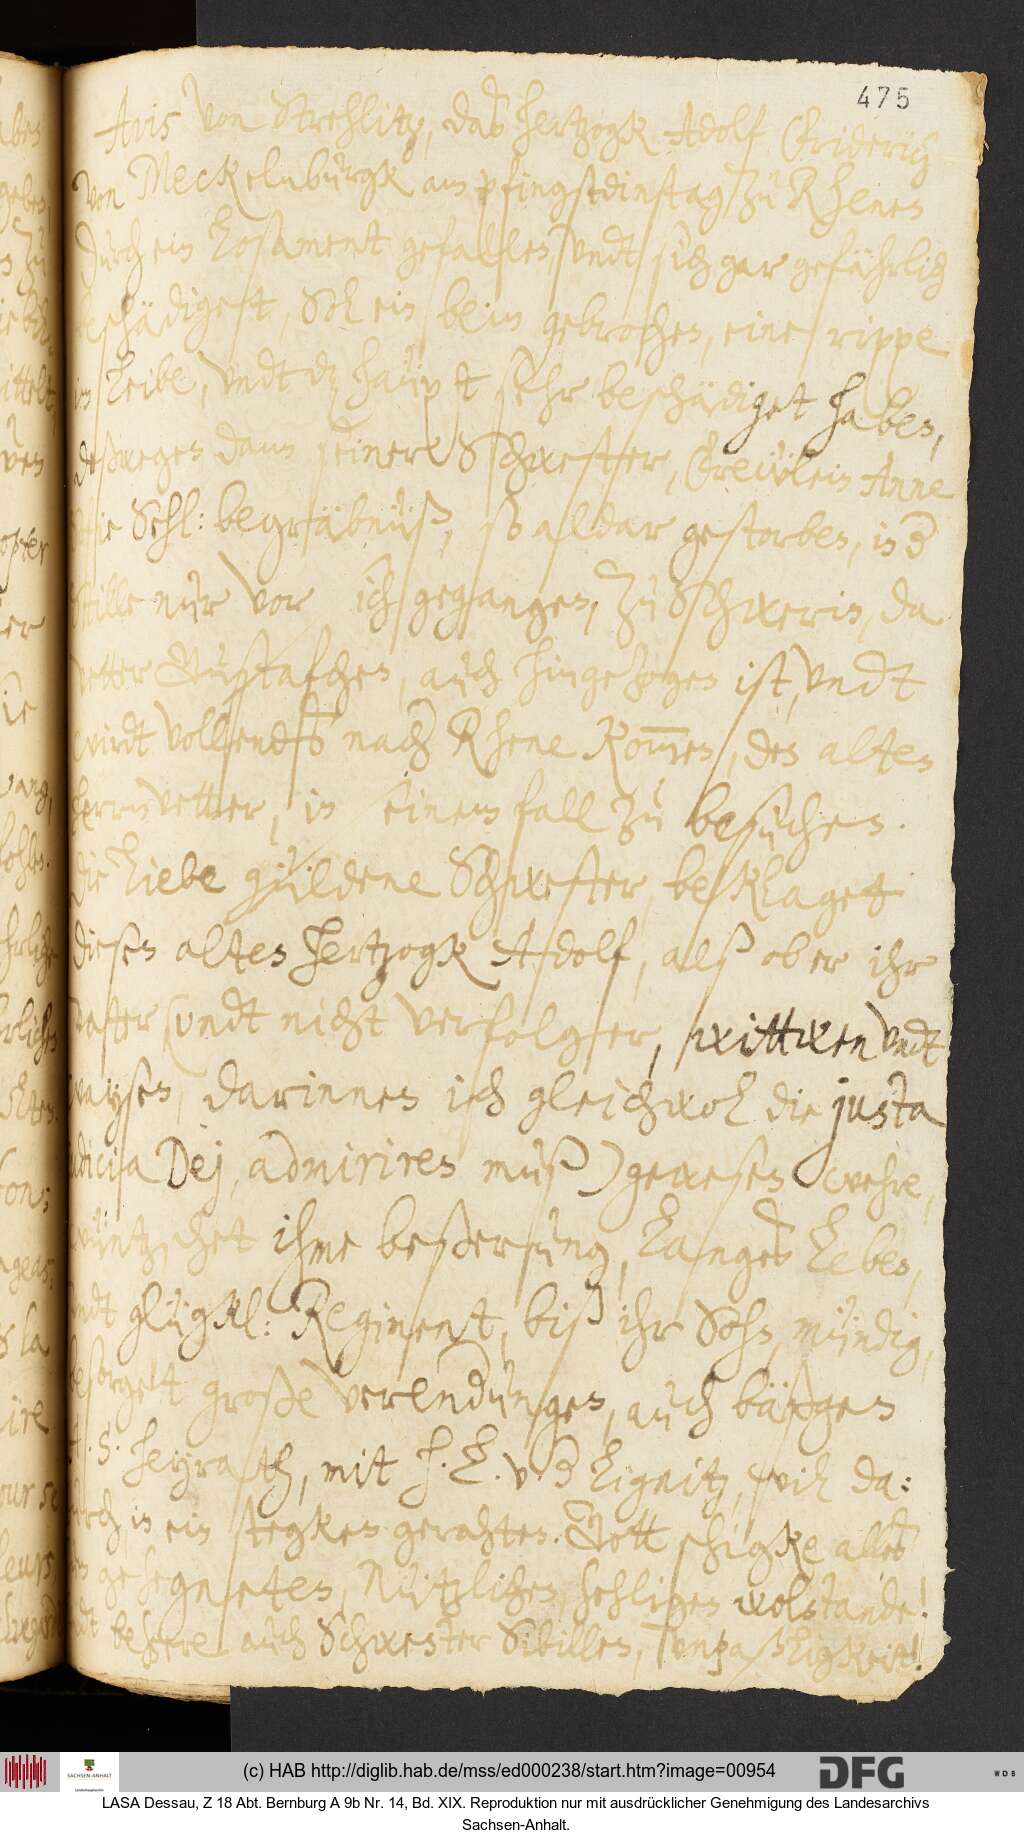 475
Avis von Strehlitz, das hertzogk Adolf Friderich
von Meckelnburgk am pfingstdinstag zu Rhenen
durch ein Losament gefallen, undt sich gar gefährlich
beschädiget, Soll ein bein gebrochen, eine rippe
im Leibe, undt dz häupt sehr beschädiget haben,
deßwegen dann seiner Schwester, Frewlein Anne
Sehl: begräbnüß, so aldar gestorben, in der
Stille nur vor sich gegangen, zu Schwerin, da
vetter Gustafchen, auch hingezogen ist, undt
wirdt vollendts nach Rhene kommen, den alten
herrn vetter, in seinem fall zu besuchen.
Die Liebe güldene Schwester, beklaget
diesen alten hertzogk Adolf, alß ob er ihr
Vatter (undt nicht verfolger, wittwen undt
waysen, darinnen ich gleichwol die justa
judicia Dej, admiriren muß) gewesen wehre,
wüntzschet ihme beßerung, Langes Leben,
undt glügkl: Regiment, biß ihr Sohn mündig,
besorget große verendungen, auch bäsgen
A. S. heyrath, mit h. L. v. der Lignitz, will da:
durch in ein stegken gerahten. Gott schigke alles
in gesegneten, Nützlichen, sehligen wolstande!
undt beßere auch Schwester Sibillen, unpaßligkeit!
(c) HAB http://diglib.hab.de/mss/ed000238/start.htm?image=00954
SACHSEN-ANHALT
DFG
WDB
LASA Dessau, Z 18 Abt. Bernburg A 9b Nr. 14, Bd. XIX. Reproduktion nur mit ausdrücklicher Genehmigung des Landesarchivs
Sachsen-Anhalt.